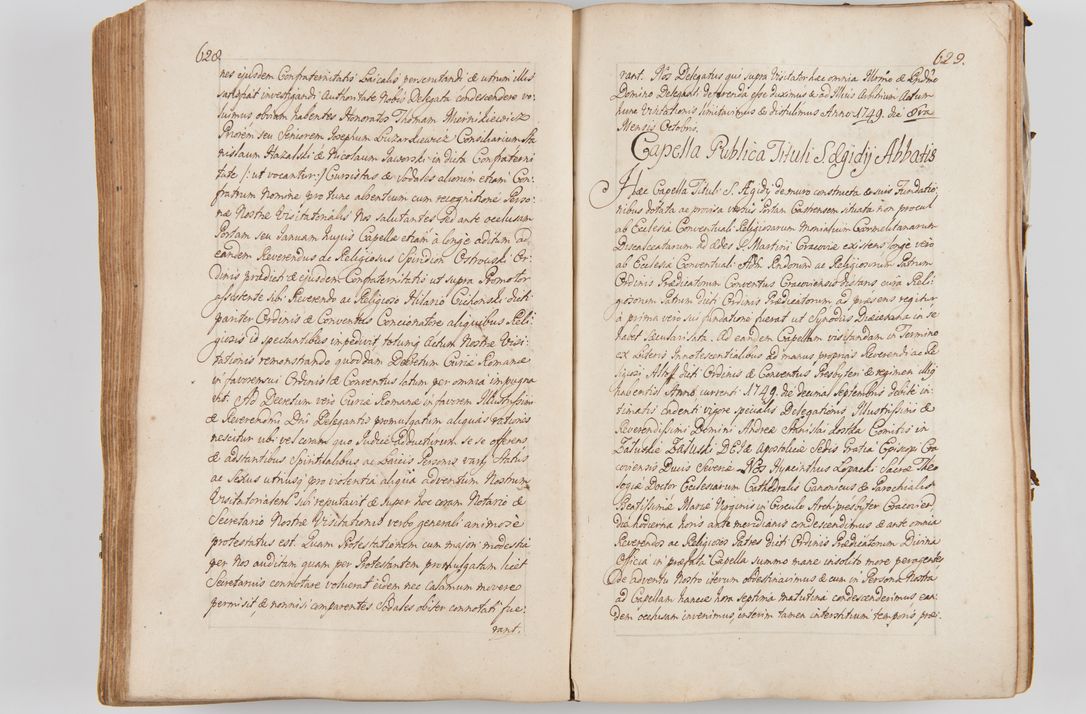 628.
nes ejusdem Confraternitatis Laicalis perscrutandi & utrum illis
satisfiat investigandi Authoritate Nobis Delegata condescendere vo-
luimus obviam habentes Honoratos Thomam Miernikiewicz
Priorem seu Seniorem Josephum Luzarkiewicz Consiliarium Sta-
nislaum Hazalski & Nicolaum Jaworski in dicta Confraterni
tate /: ut vocantur :/ Cursistas & Sodales aliorum etiam Con-
fratrum Nomine pro tunc absentium cum recognitione Perso-
næ Nostræ Visitatorialis Nos salutantes sed ante occlusam
Portam seu Januam hujus Capellæ etiam à longe aditum ad
eandem Reverendus & Religiosus Spiridion Ostrowski Or-
dinis prædicti & ejusdem Confraternitatis ut supra Promotor
assistente sibi Reverendo ac Religioso Hilario Cichonski dicti
pariter Ordinis & Conventus Concionatore aliquibus Reli-
giosis id spectantibus impedivit totumq Actum Nostræ Visi-
tationis remonstrando quoddam Decretum Curiæ Romanæ
in favorem sui Ordinis & Conventus latum per omnia impugna
vit. Ad Decretum vero Curiæ Romanæ in favorem Illustrissimi
& Reverendmi Dni Delegantis promulgatum aliquas rationes
nescitur ubi vel coram quo Judice educturum se se offerens
& adstantibus Spiritualibus ac Laicis Personis varij Status
ac Sexus utriusq pro violentia aliqua adventum Nostrum
Visitatorialem sibi reputavit & super hoc coram Notario &
Secretario Nostræ Visitationis verbo generali animose
protestatus est. Quam Protestationem cum majori modestia
per Nos auditam quam per Protestantem promulgatam licet
Secretarius connotare voluerat eidem nec calamum movere
permisit & nonnisi comparentes Sodales obiter connotati fue-
rant.
629.
rant. Nos Delegatus qui supra Visitator hæc omnia Illrmo & Rndmo
Domino Deleganti deferenda esse duximus & ad Illius Arbitrium Actum
hunc Visitationis limitavimus & distulimus Anno 1749. die 8va
Mensis Octobris.
Capella Publica Tituli S. Ægidij Abbatis
Hæc Capella Tituli S. Ægidy de muro constructa & suis Fundatio-
nibus dotata ac provisa versus Portam Castrensem situata non procul
ab Ecclesia Conventuali Religiosarum Monialium Carmelitanarum
Discalceatarum ad ædes S. Martini Cracoviæ existens longe vero
ab Ecclesia Conventuali Adm Rndorum ac Religiosorum Patrum
Ordinis Prædicatorum Conventus Cracoviensis distans cura Reli-
giosorum Patrum dicti Ordinis Prædicatorum ad præsens regitur
à prima vero sui fundatione fuerat ut Synodus Diæcesana in se
habet Sæcularisata. Ad eandem Capellam visitandam in Termino
ex Literis Innotescentialibus ad manus proprias Reverendi ac Re
ligiosi Altræ dicti Ordinis & Conventus Presbyteri & regimen illiq
habentis Anno currenti 1749. die decima Septembris debite in-
timatis cadenti vigore specialis Delegationis Illustrissimi &
Reverendissimi Domini Andreæ Stanislai Kostka Comitis in
Załuskie Załuski DEI & Apostolicæ Sedis Gratia Episcopi Cra
coviensis Ducis Severiæ Nos Hyacinthus Łopacki Sacræ Theo
logiæ Doctor Ecclesiarum Cathedralis Canonicus & Parochialis
Beatissimæ Mariæ Virginis in Circulo Archipresbyter Cracovien:
die hodierna horis ante meridianis condescendimus & ante omnia
Reverendos ac Religiosos Patres dicti Ordinis Prædicatorum Divina
Officia in præfata Capella summo mane insolito more peragentes
de adventu Nostro iterum obdestinavimus & cum in Persona Nostra
ad Capellam hancce hora septima matutina condescenderimus ean-
dem occlusam invenimus, interim tamen interstitium temporis præ-